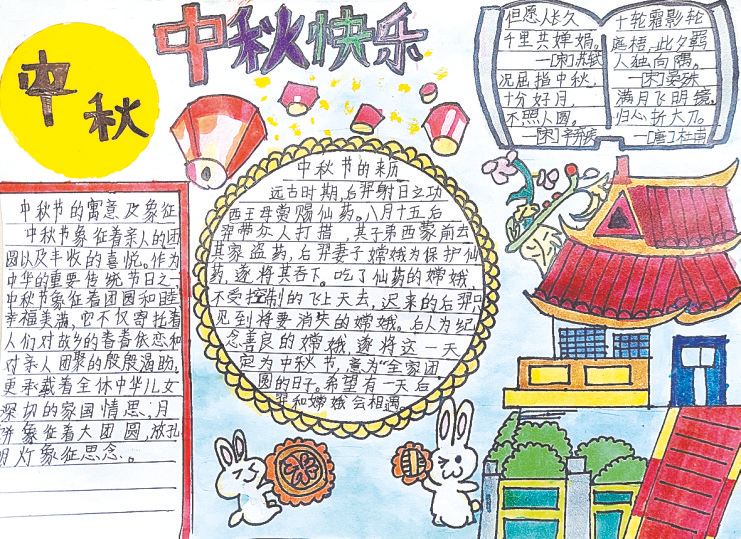 中秋快乐
中秋
但愿人长久
千里共婵娟。
—[宋]苏轼
况屈指中秋,
十分好月,
不照人圆。
—[宋]辛弃疾
十轮霜影轮
庭梧,此夕羁
人独向隅。
—[宋]晏殊
满月飞明镜,
归心折大刀。
—[唐]杜甫
中秋节的寓意及象征
中秋节象征着亲人的团
圆以及丰收的喜悦。作为
中华的重要传统节日之一,
中秋节象征着团圆和睦
幸福美满,它不仅寄托着
人们对故乡的眷眷依恋和
对亲人团聚的殷殷渴盼,
更承载着全体中华儿女
深切的家国情思;月
饼象征着大团圆,放孔
明灯象征思念。
中秋节的来历
远古时期,后羿射日之功
西王母赏赐仙药。八月十五后
羿带众人打措,其子弟西蒙前去
其家盗药,后羿妻子嫦娥为保护仙
药,遂将其吞下。吃了仙药的嫦娥,
不受控制的飞上天去,迟来的后羿只
见到将要消失的嫦娥。后人为纪
念善良的嫦娥,遂将这一天
定为中秋节,意为“全家团
圆的日子。希望有一天后
羿和嫦娥会相遇。